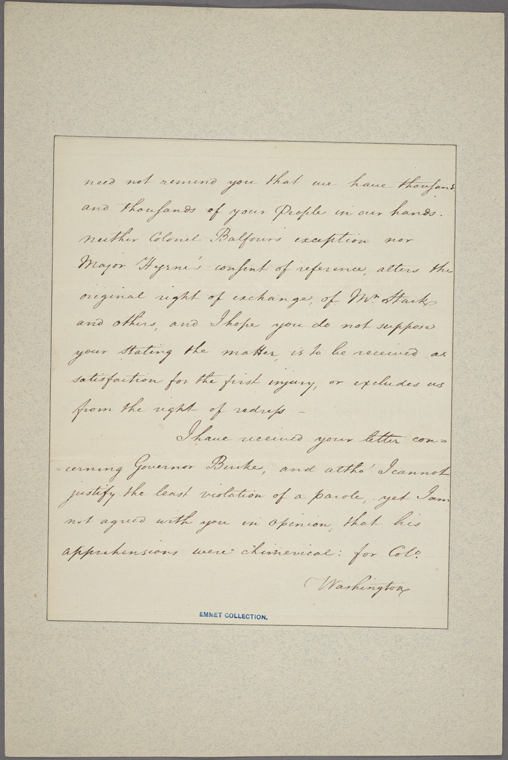 need not remind you that we have thousand
and thousands of your People in our hands.
neither Colonel Balfour's exception nor
Major Hyrne's consent of reference, alters the
original right of exchange, of Mr. Stark
and others, and I hope you do not suppose
your stating the matter, is to be received as
satisfaction for the first injury, or excludes us
from the right of redress –
I have received your letter con=
=cerning Governor Burke, and altho' I cannot
justify the least violation of a parole, yet I am
not agreed with you in opinion, that his
apprehensions were chimerical: for Colo.
Washington
EMMET COLLECTION.